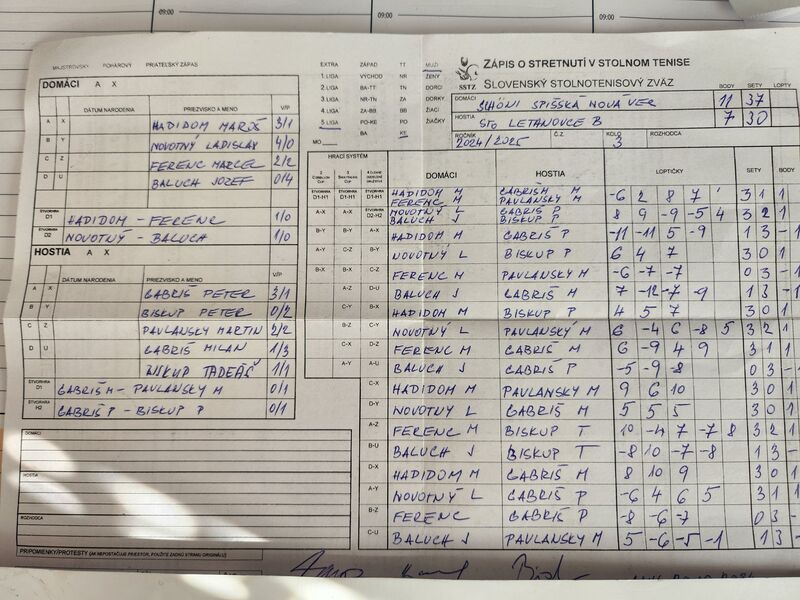 09:00
09:00
MAJSTROVSKÝ POHÁROVÝ PRIATEĽSKÝ ZÁPAS
EXTRA ZÁPAD TT MUŽI
1. LIGA VÝCHOD NR ŽENY
2. LIGA BA-TT TN DORCI
3. LIGA NR-TN ZA DORKY
4. LIGA ZA-BB BB ŽIACI
5. LIGA PO-KE PO ŽIAČKY
BA KE
MO
SSTZ
ZÁPIS O STRETNUTÍ V STOLNOM TENISE
SLOVENSKÝ STOLNOTENISOVÝ ZVÄZ
BODY SETY
DOMÁCI SCHÖNI SPIŠSKÁ NOVÁ VES 11 37
HOSTIA STO LETANOVCE B 7 30
ROČNÍK 2024/2025 Č.Z. KOLO 3 ROZHODCA
DOMÁCI A X
DÁTUM NARODENIA PRIEZVISKO A MENO V/P
A X HADIDOM MAROŠ 3/1
B Y NOVOTNÝ LADISLAV 4/0
C Z FERENC MARCEL 2/2
D U BALUCH JOZEF 0/4
ŠTVORHRA D1 HADIDOM - FERENC 1/0
ŠTVORHRA D2 NOVOTNÝ - BALUCH 1/0
HOSTIA A X
DÁTUM NARODENIA PRIEZVISKO A MENO V/P
A X GABRIŠ PETER 3/1
B Y BISKUP PETER 0/2
C Z PAVLANSKY MARTIN 2/2
D U GABRIŠ MILAN 1/3
BISKUP TADEÁŠ 1/1
ŠTVORHRA GABRIŠ M - PAVLANSKY M 0/1
ŠTVORHRA H2 GABRIŠ P - BISKUP P 0/1
DOMÁCI
HOSTIA
ROZHODCA
PRIPOMIENKY/PROTESTY (AK NEPOSTAČUJE PRIESTOR, POUŽITE ZADNÚ STRANU ORIGINÁLU)
HRACÍ SYSTÉM
DOMÁCI HOSTIA LOPTIČKY SETY BODY
D1-H1 D1-H1 D1-H1 HADIDOM M GABRIŠ M -6 2 8 7 3 1 1
FERENC M PAVLANSKY M
A-X A-X D2-H2 NOVOTNÝ L GABRIŠ P 8 9 -9 -5 4 3 2 1
BALUCH J BISKUP P
B-Y B-Y A-Y HADIDOM M GABRIŠ P -11 -11 5 -9 1 3 -
A-Y C-Z NOVOTNÝ L BISKUP P 6 4 7 3 0 1
B-X B-X FERENC M PAVLANSKY M -6 -7 -7 0 3 -
A-Z D-U BALUCH J GABRIŠ M 7 -12 -7 -9 1 3 -
C-Y B-X HADIDOM M BISKUP P 4 5 7 3 0 1
B-Z C-Y NOVOTNÝ L PAVLANSKÝ M 6 -4 6 -8 5 3 2 1
C-X D-Z FERENC M GABRIŠ M 6 -9 4 9 3 1 1
A-Y A-U BALUCH J GABRIŠ P -5 -9 -8 0 3 -
C-X HADIDOM M PAVLANSKY M 9 6 10 3 0 1
D-Y NOVOTNÝ L GABRIŠ M 5 5 5 3 0 1
A-Z FERENC M BISKUP T 10 -4 7 -7 8 3 2 1
B-U BALUCH J BISKUP T -8 10 -7 -8 1 3 -
D-X HADIDOM M GABRIŠ M 8 10 9 3 0 1
A-Y NOVOTNÝ L GABRIŠ P -6 4 6 5 3 1 1
B-Z FERENC GABRIŠ P -8 -6 -7 0 3 -
C-U BALUCH J PAVLANSKY M 5 -6 -5 -1 1 3 -